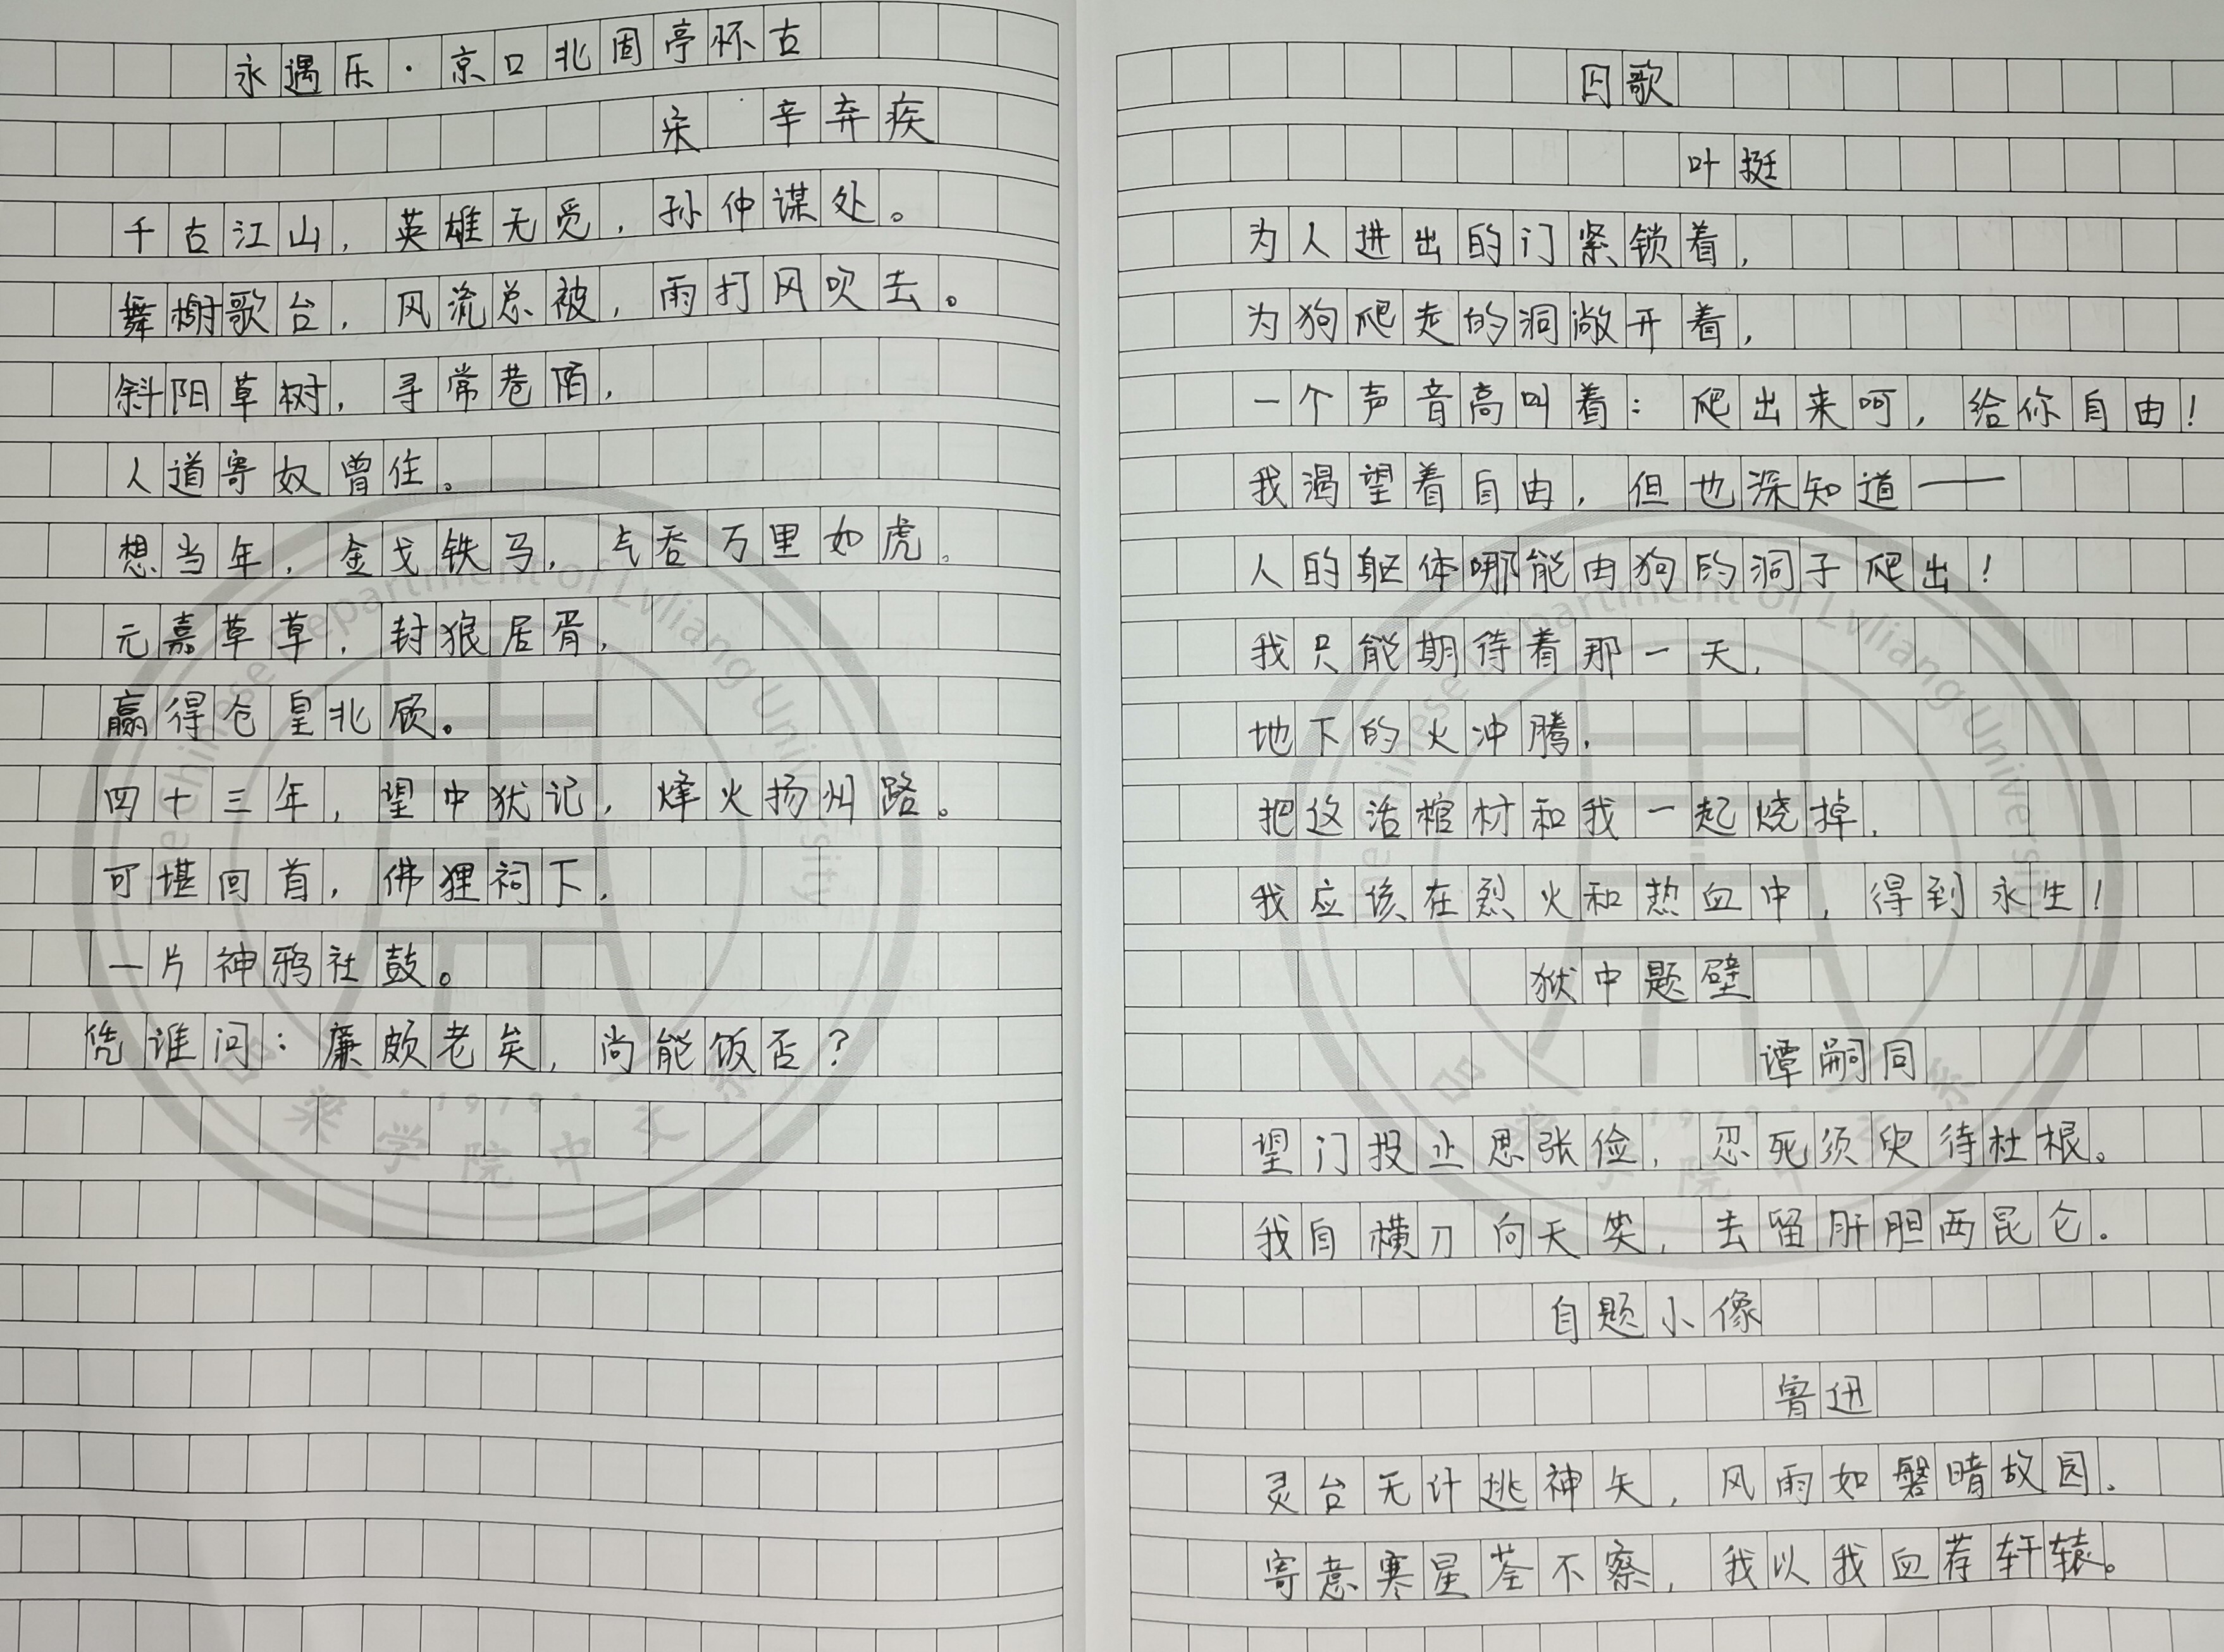 永遇乐·京口北固亭怀古
宋 辛弃疾
千古江山，英雄无觅，孙仲谋处。
舞榭歌台，风流总被，雨打风吹去。
斜阳草树，寻常巷陌，
人道寄奴曾住。
想当年，金戈铁马，气吞万里如虎。
元嘉草草，封狼居胥，
赢得仓皇北顾。
四十三年，望中犹记，烽火扬州路。
可堪回首，佛狸祠下，
一片神鸦社鼓。
凭谁问：廉颇老矣，尚能饭否？
The Chinese Department of Lvliang University
·1979·
吕梁学院中文系
囚歌
叶挺
为人进出的门紧锁着，
为狗爬走的洞敞开着，
一个声音高叫着：爬出来呵，给你自由！
我渴望着自由，但也深知道——
人的躯体哪能由狗的洞子爬出！
我只能期待着那一天，
地下的火冲腾，
把这活棺材和我一起烧掉，
我应该在烈火和热血中，得到永生！
狱中题壁
谭嗣同
望门投止思张俭，忍死须臾待杜根。
我自横刀向天笑，去留肝胆两昆仑。
自题小像
鲁迅
灵台无计逃神矢，风雨如磐暗故园。
寄意寒星荃不察，我以我血荐轩辕。
The Chinese Department of Lvliang University
·1979·